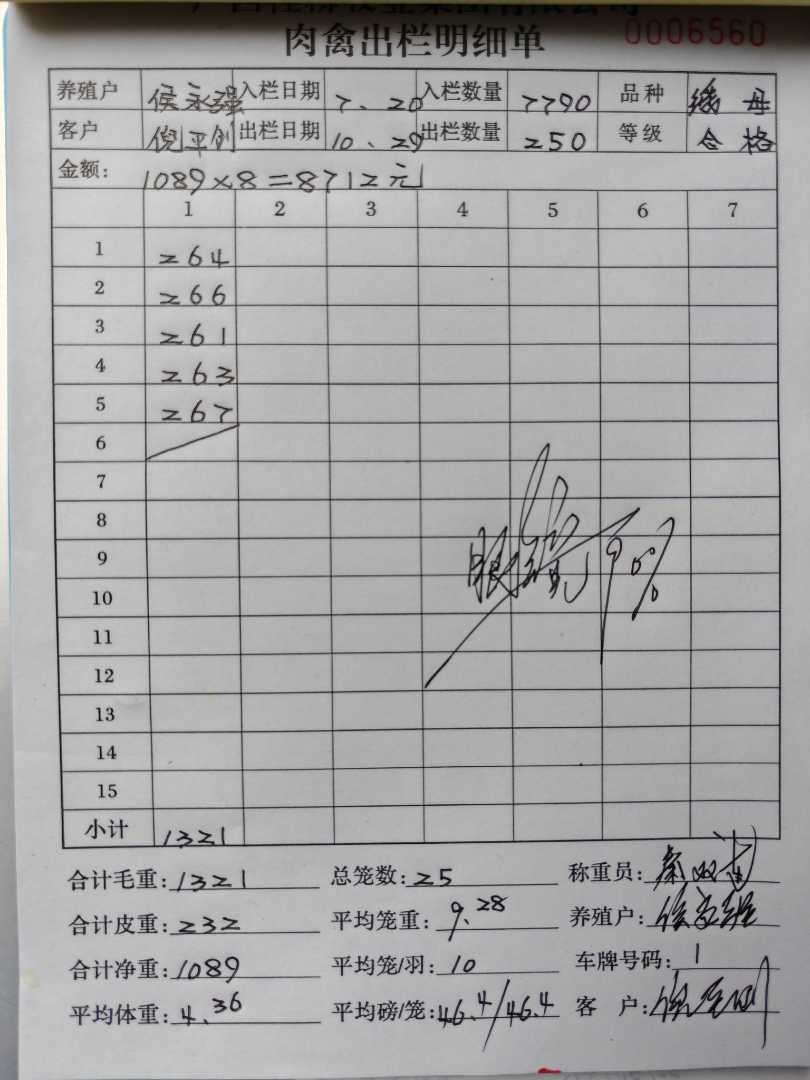 肉禽出栏明细单 0006560
养殖户 侯永强 入栏日期 7、20 入栏数量 7790 品种 母
客户 倪平刽 出栏日期 10、29 出栏数量 250 等级 合格
金额: 1089×8=8712元
1 2 3 4 5 6 7
1 264
2 266
3 261
4 263
5 267
6
7
8
9 90%
10
11
12
13
14
15
小计 1321
合计毛重: 1321 总笼数: 25 称重员:
合计皮重: 232 平均笼重: 9.28 养殖户:
合计净重: 1089 平均笼/羽: 10 车牌号码: 1
平均体重: 4.36 平均磅/笼: 46.4/46.4 客 户: